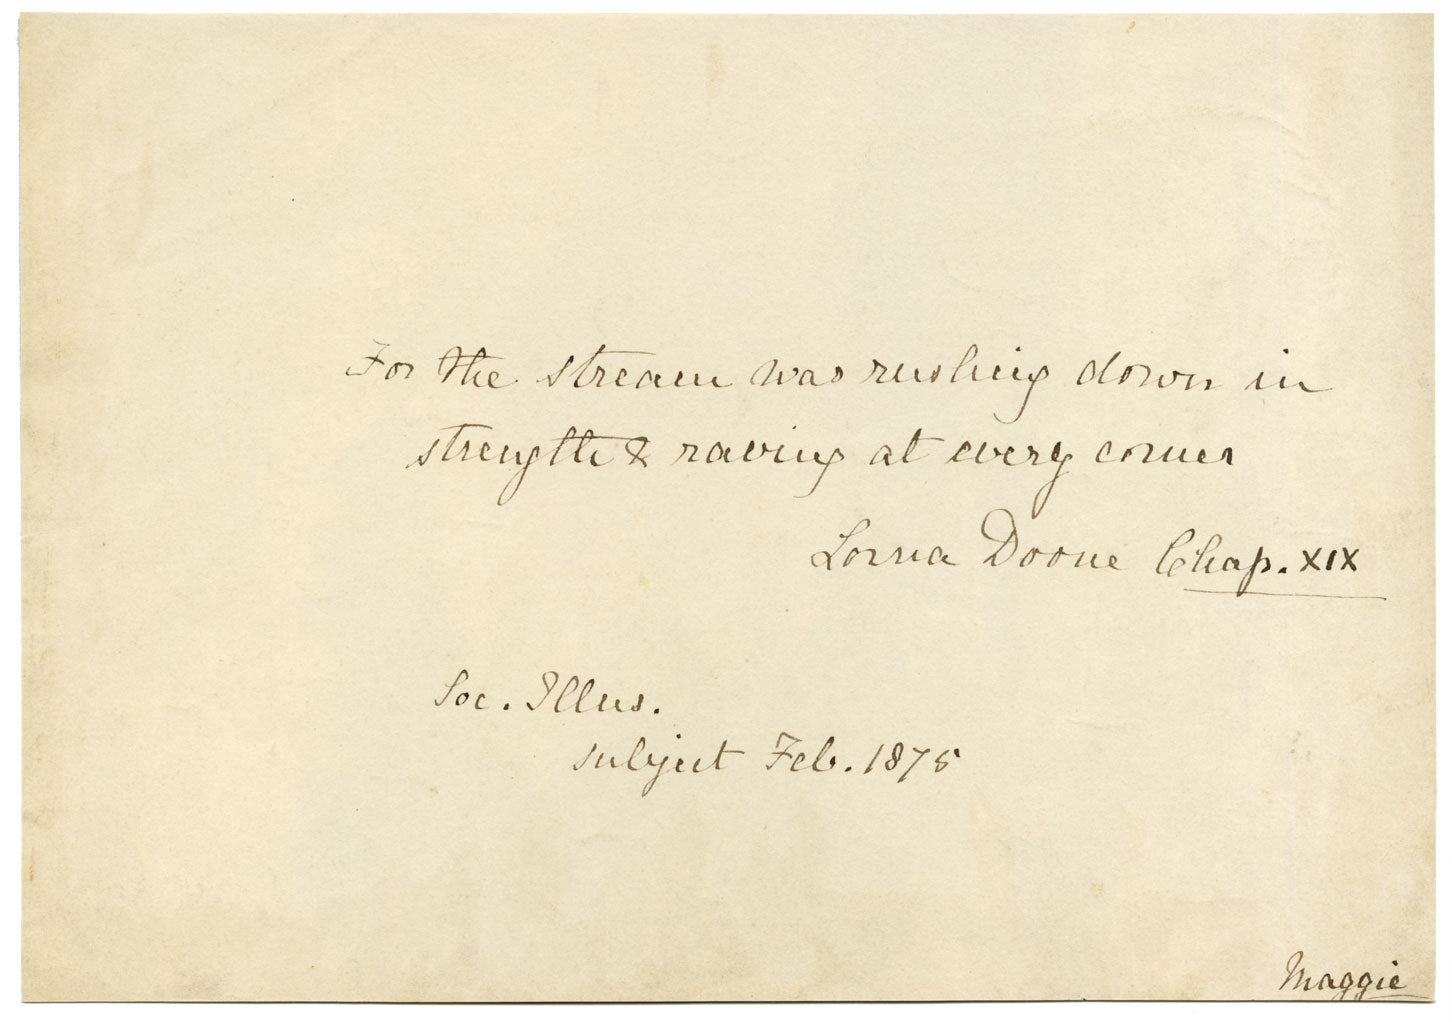 For the stream was rushing down in
strength & raving at every corner
Lorna Doone Chap. XIX
Soc. Illus.
subject Feb. 1875
Maggie